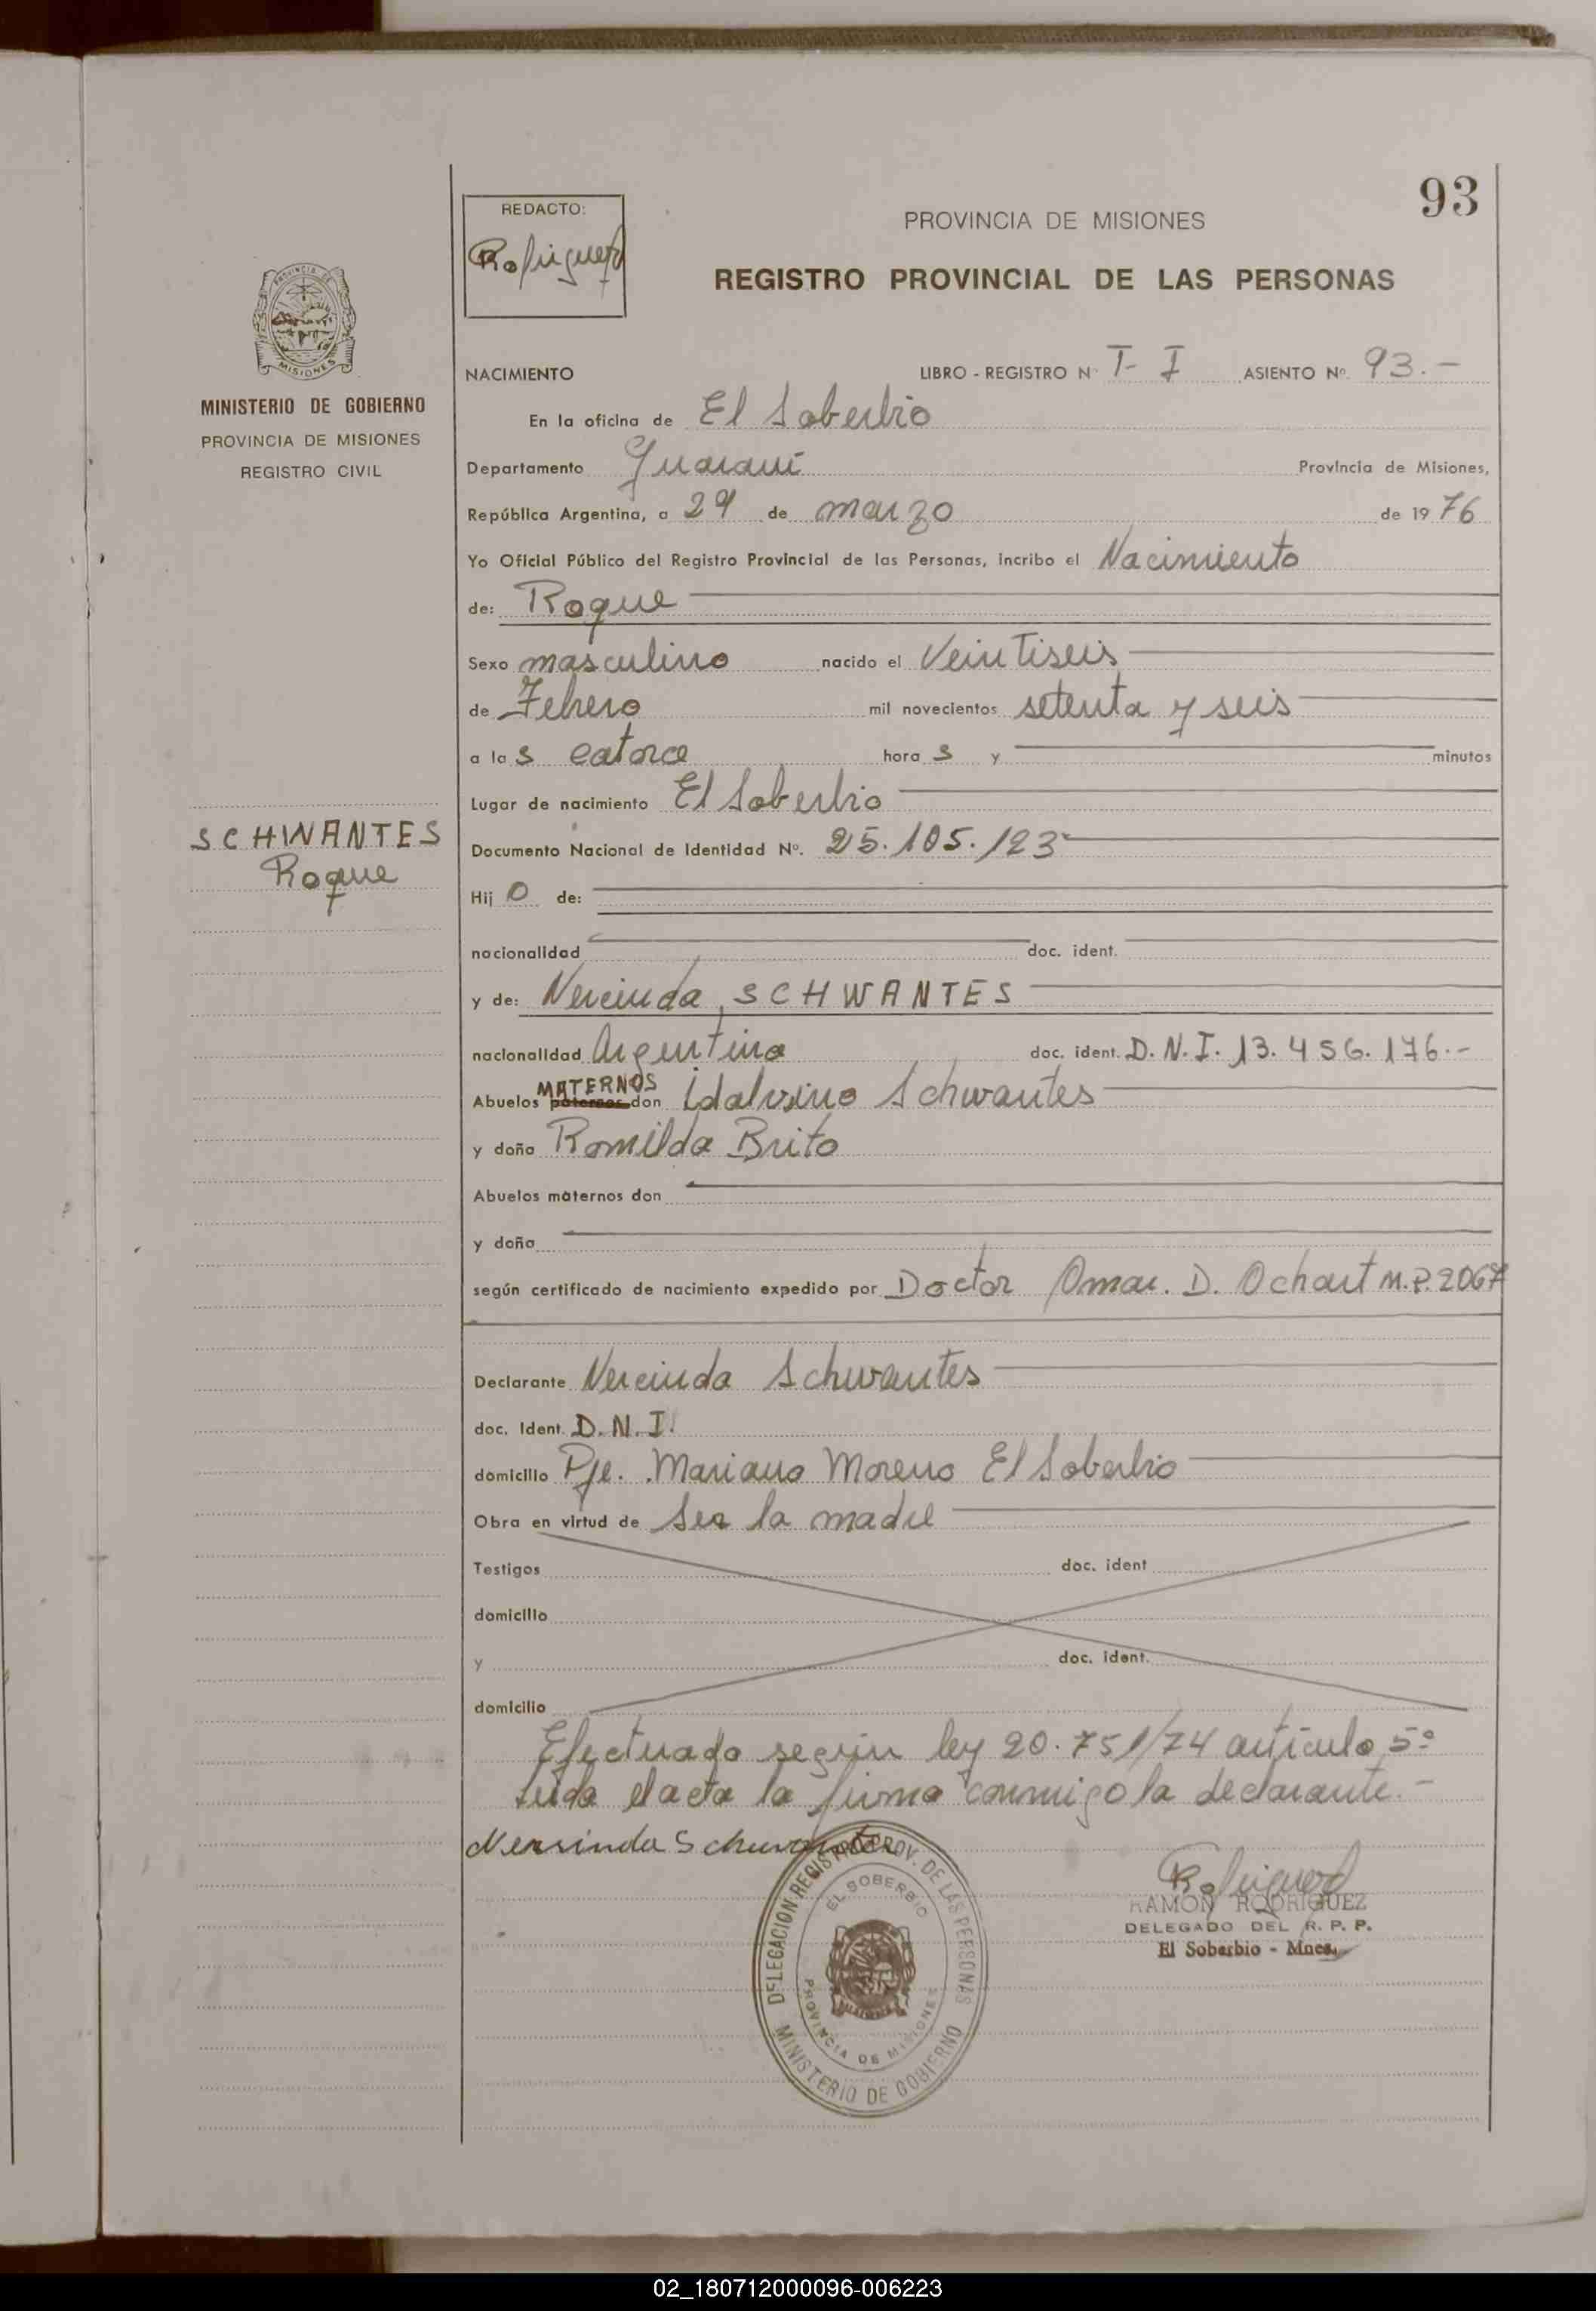 93
REDACTO:
Rodriguez
PROVINCIA DE MISIONES
REGISTRO PROVINCIAL DE LAS PERSONAS
PROVINCIA DE
MISIONES
MINISTERIO DE GOBIERNO
PROVINCIA DE MISIONES
REGISTRO CIVIL
NACIMIENTO LIBRO - REGISTRO Nº T- I ASIENTO Nº 93.-
En la oficina de El Soberbio
Departamento Guaraní Provincia de Misiones,
República Argentina, a 29 de marzo de 19 76
Yo Oficial Público del Registro Provincial de las Personas, incribo el Nacimiento
de: Roque
Sexo masculino nacido el Veintiseis
de Febrero mil novecientos setenta y seis
a la s catorce hora s y minutos
Lugar de nacimiento El Soberbio
SCHWANTES
Roque
Documento Nacional de Identidad Nº. 25.105.123
Hij o de:
nacionalidad doc. ident.
y de: Nercinda, SCHWANTES
nacionalidad Argentina doc. ident. D.N.I. 13.456.176.-
MATERNOS
Abuelos paternos don Idalvino Schwantes
y doña Romilda Brito
Abuelos maternos don
y doña
según certificado de nacimiento expedido por Doctor Omar. D. Ochart M.P. 2067
Declarante Nercinda Schwantes
doc. Ident. D.N.I.
domicilio Pje. Mariano Moreno El Soberbio
Obra en virtud de Ser la madre
Testigos doc. ident
domicilio
y doc. ident.
domicilio
Efectuado según ley 20.751/74 artículo 5º
Leida el acta la firma conmigo la declarante.-
Nersinda Schuvantes
DELEGACION REGISTRO PROV. DE LAS PERSONAS
EL SOBERBIO
PROVINCIA DE MISIONES
MINISTERIO DE GOBIERNO
Rodriguez
RAMON RODRIGUEZ
DELEGADO DEL R. P. P.
El Soberbio - Mnes.
02_180712000096-006223